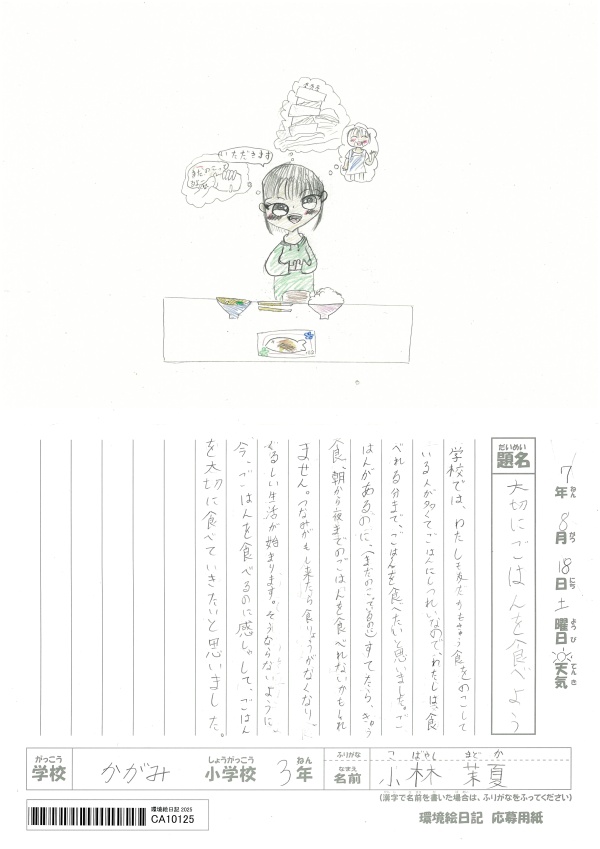 いただきます
7年8月18日土曜日天気
だいめい
題名
大切にごはんを食べよう
学校では、わたしも友だちもきゅう食をのこして
いる人が多くてごはんにしつれいなので、わたしは、食
べれる分まで、ごはんを食べたいと思いました。ご
はんがあるのに、(まだのこってるのに)すてたら、きゅう
食、朝から夜までのごはんを食べれないかもしれ
ません。つなみがもし来たら食りょうがなくなり、
くるしい生活が始まります。そうならないように、
今、ごはんを食べるのに感しゃして、ごはん
を大切に食べていきたいと思いました。
がっこう しょうがっこう ねん ふりがな こ ばやし まど か
学校 かがみ 小学校 3年 なまえ 名前 小林 茉夏
(漢字で名前を書いた場合は、ふりがなをふってください)
環境絵日記 応募用紙
環境絵日記 2025
CA10125